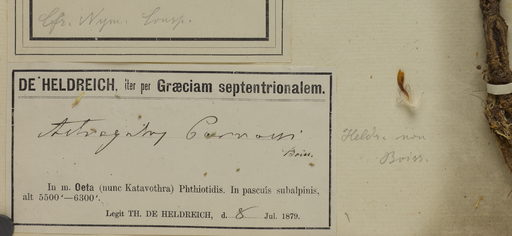 Cfr. Nym. Consp.
DE HELDREICH, iter per Græciam septentrionalem.
Astragalus Parnassi
Boiss.
Heldr. non
Boiss.
In m. Oeta (nunc Katavothra) Phthiotidis. In pascuis subalpinis,
alt 5500'—6300'.
Legit TH. DE HELDREICH, d. 8 Jul. 1879.